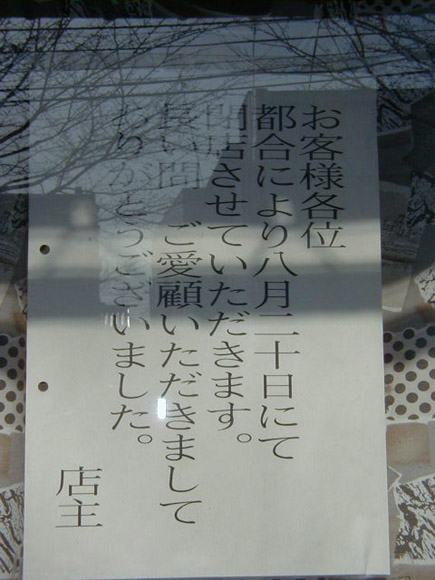 お客様各位
都合により八月二十日にて
閉店させていただきます。
長い間　ご愛顧いただきまして
ありがとうございました。
店主